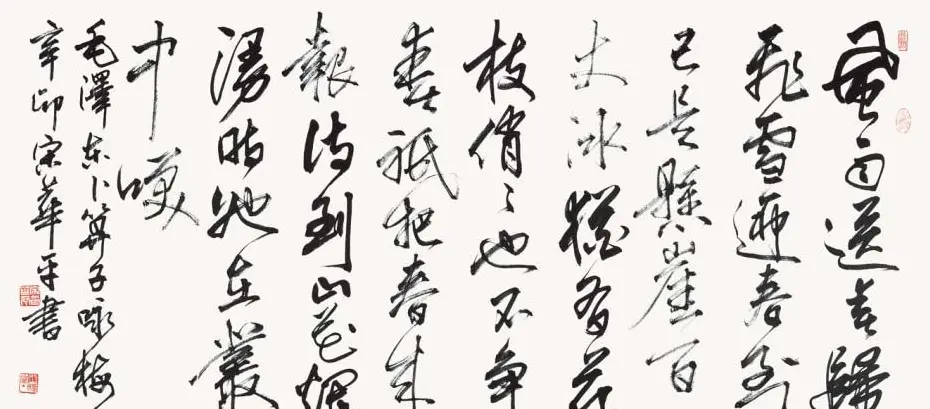 風雨送春歸
飛雪迎春到
已是懸崖百
丈冰猶有花
枝俏〻也不争
春祇把春来
報待到山花爛
漫时她在叢
中咲
毛澤东卜算子咏梅
辛卯宋華平書